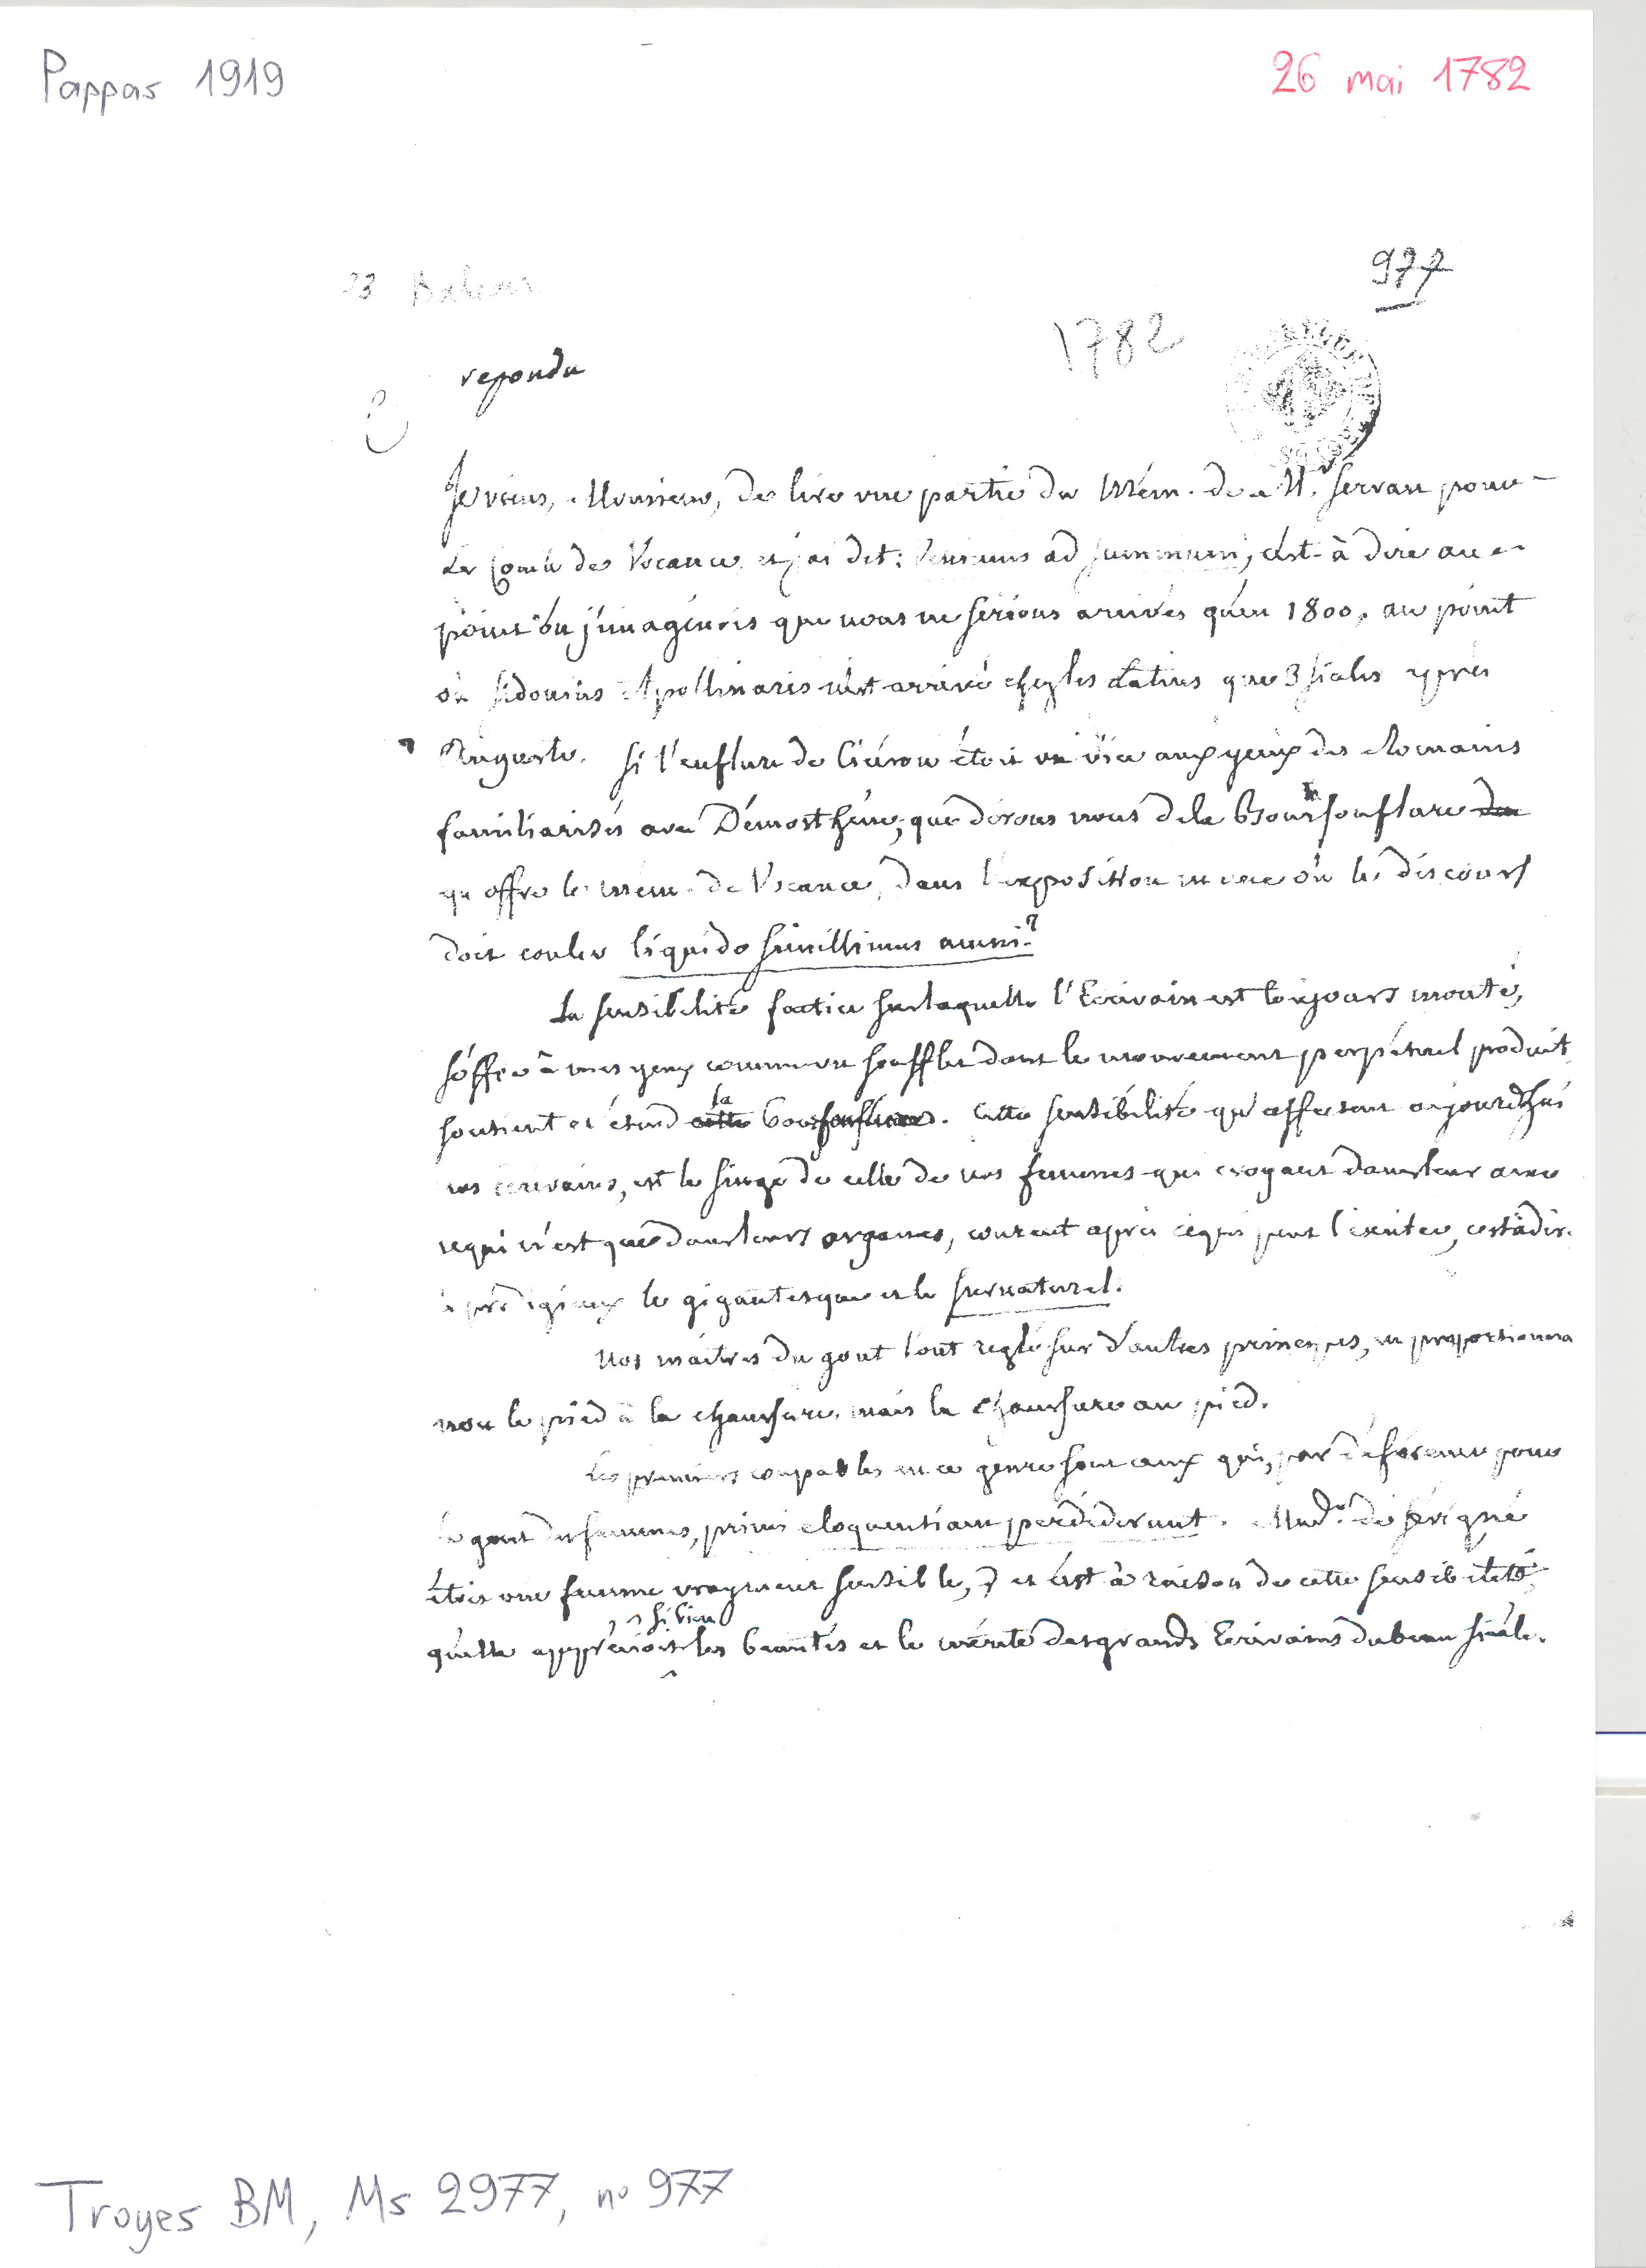 Pappas 1919
26 mai 1782
977
1782
repondu
Je viens, Monsieur, de lire une partie du Mém. de M. Servan pour
Le Comte de Vocance et j'ai dit: Venimus ad summum, c'est-à dire au
point où j'imaginois que nous ne serions arrivés qu'en 1800, au point
où Sidonius Apollinaris n'est arrivé chez les Latins que 3 siecles après
Auguste. Si l'enflure de Cicéron étoit un vice aux yeux des Romains
familiarisés avec Démosthène, que dirons nous de la Boursouflure du
qu'offre le mem. de Vocance, dans l'exposition même où le discours
doit couler liquido simillimus amni?
La sensibilité factice sur laquelle l'Ecrivain est toujours monté,
s'offre à mes yeux comme un soufflet dont le mouvement perpétuel produit
soutient et étend cette la boursouflure. Cette sensibilité qu'affectent aujourd'hui
nos écrivains, est le singe de celle de nos femmes qui croyant dans leur ame
ce qui n'est que dans leurs organes, courent après ce qui peut l'exciter, c'est à dire
le prodigieux le gigantesque et le surnaturel.
Nos maitres du gout l'ont reglé sur d'autres principes, en proportionnant
non le pied à la chaussure, mais la chaussure au pied.
Les premiers coupables en ce genre sont ceux qui, par déférence pour
le gout des femmes, primi eloquentiam perdiderunt. Mad.e de Sévigné
étoit une femme vrayment sensible, et c'est à raison de cette sensibilité,
qu'elle apprécioit si bien les beautés et le mérite des grands Ecrivains du beau siècle.
Troyes BM, Ms 2977, n° 977